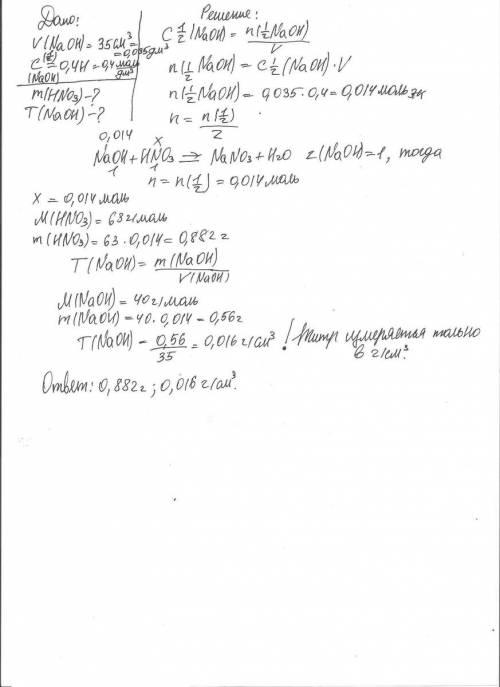 Дано:
V(NaOH) = 35 см³ =
= 0,035 дм³
C(1/z)(NaOH) = 0,4Н = 0,4 моль/дм³
m(HNO₃) - ?
T(NaOH) - ?
Решение:
C 1/z (NaOH) = n(1/z NaOH)/V
n(1/z NaOH) = C 1/z (NaOH) · V
n(1/z NaOH) = 0,035 · 0,4 = 0,014 моль эк
n = n(1/z)/z
0,014 x
NaOH + HNO₃ ⇒ NaNO₃ + H₂O z(NaOH) = 1, тогда
1 1
n = n(1/z) = 0,014 моль
x = 0,014 моль
M(HNO₃) = 63 г/моль
m(HNO₃) = 63 · 0,014 = 0,882 г
T(NaOH) = m(NaOH)/V(NaOH)
M(NaOH) = 40 г/моль
m(NaOH) = 40 · 0,014 = 0,56 г
T(NaOH) - 0,56/35 = 0,016 г/см³ ! Титр измеряется только
в г/см³.
Ответ: 0,882 г; 0,016 г/см³.